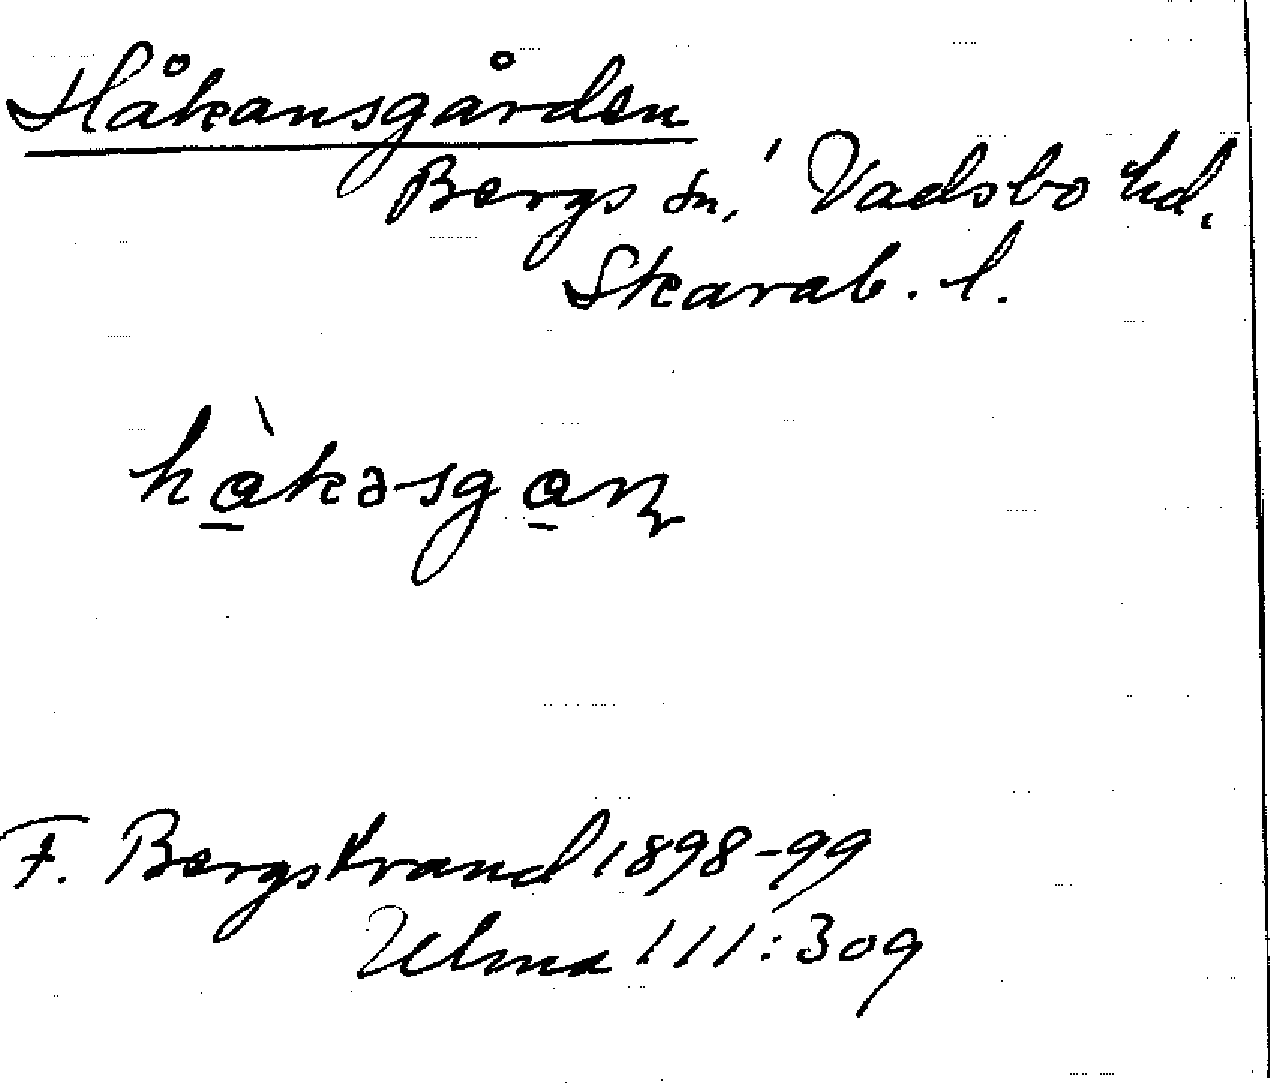 Håkansgården
Bergs sn, Vadsbo hd.
Skarab. l.
hàkəsgaɳ
F. Bergstrand 1898-99
Ulma 111:309